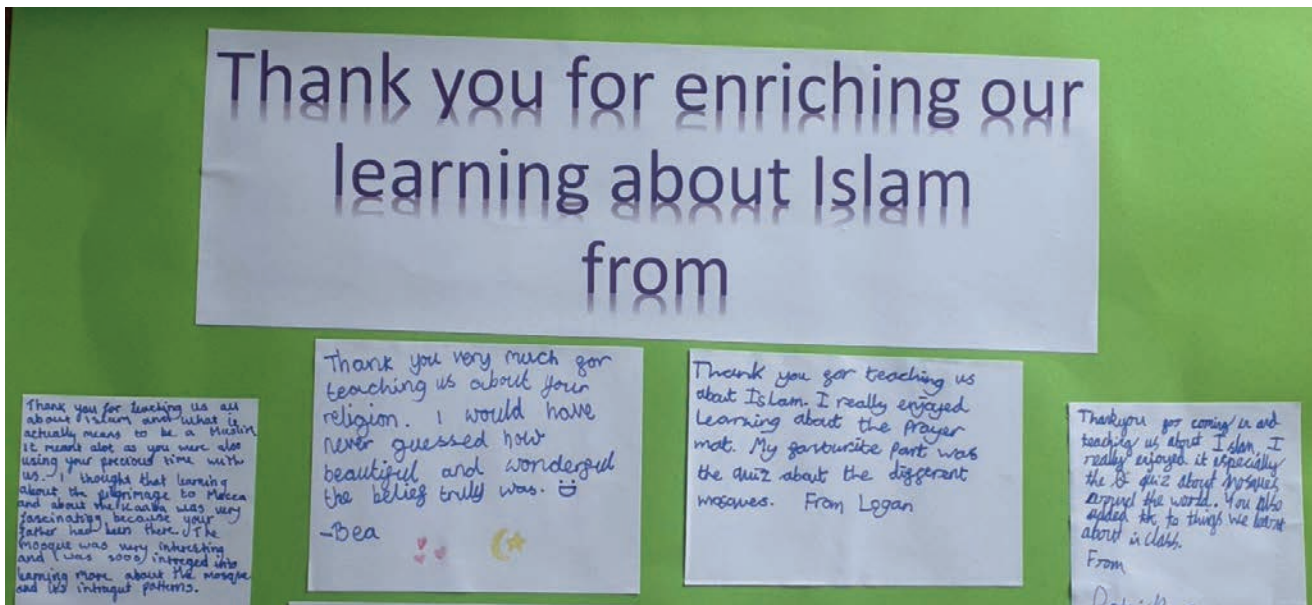 Thank you for enriching our
learning about Islam
from
Thank you for teaching us all
about Islam and what is
actually means to be a Muslim
It meant alot as you were also
using your precious time with
us. I thought that learning
about the pilgrimage to Mecca
and about the Kaaba was very
fascinating because your
father had been there. The
mosque was very interesting
and I was sooo intreged into
learning more about the mosque
and its intragut patterns.
Thank you very much for
teaching us about your
religion. I would have
never guessed how
beautiful and wonderful
the belief truly was.
-Bea
Thank you for teaching us
about Islam. I really enjoyed
Learning about the Prayer
mat. My favourite Part was
the quiz about the different
mosques. From Logan
Thankyou for coming in and
teaching us about Islam. I
really enjoyed it especially
the quiz about Mosques
around the world. You also
added to things we learnt
about in class.
From